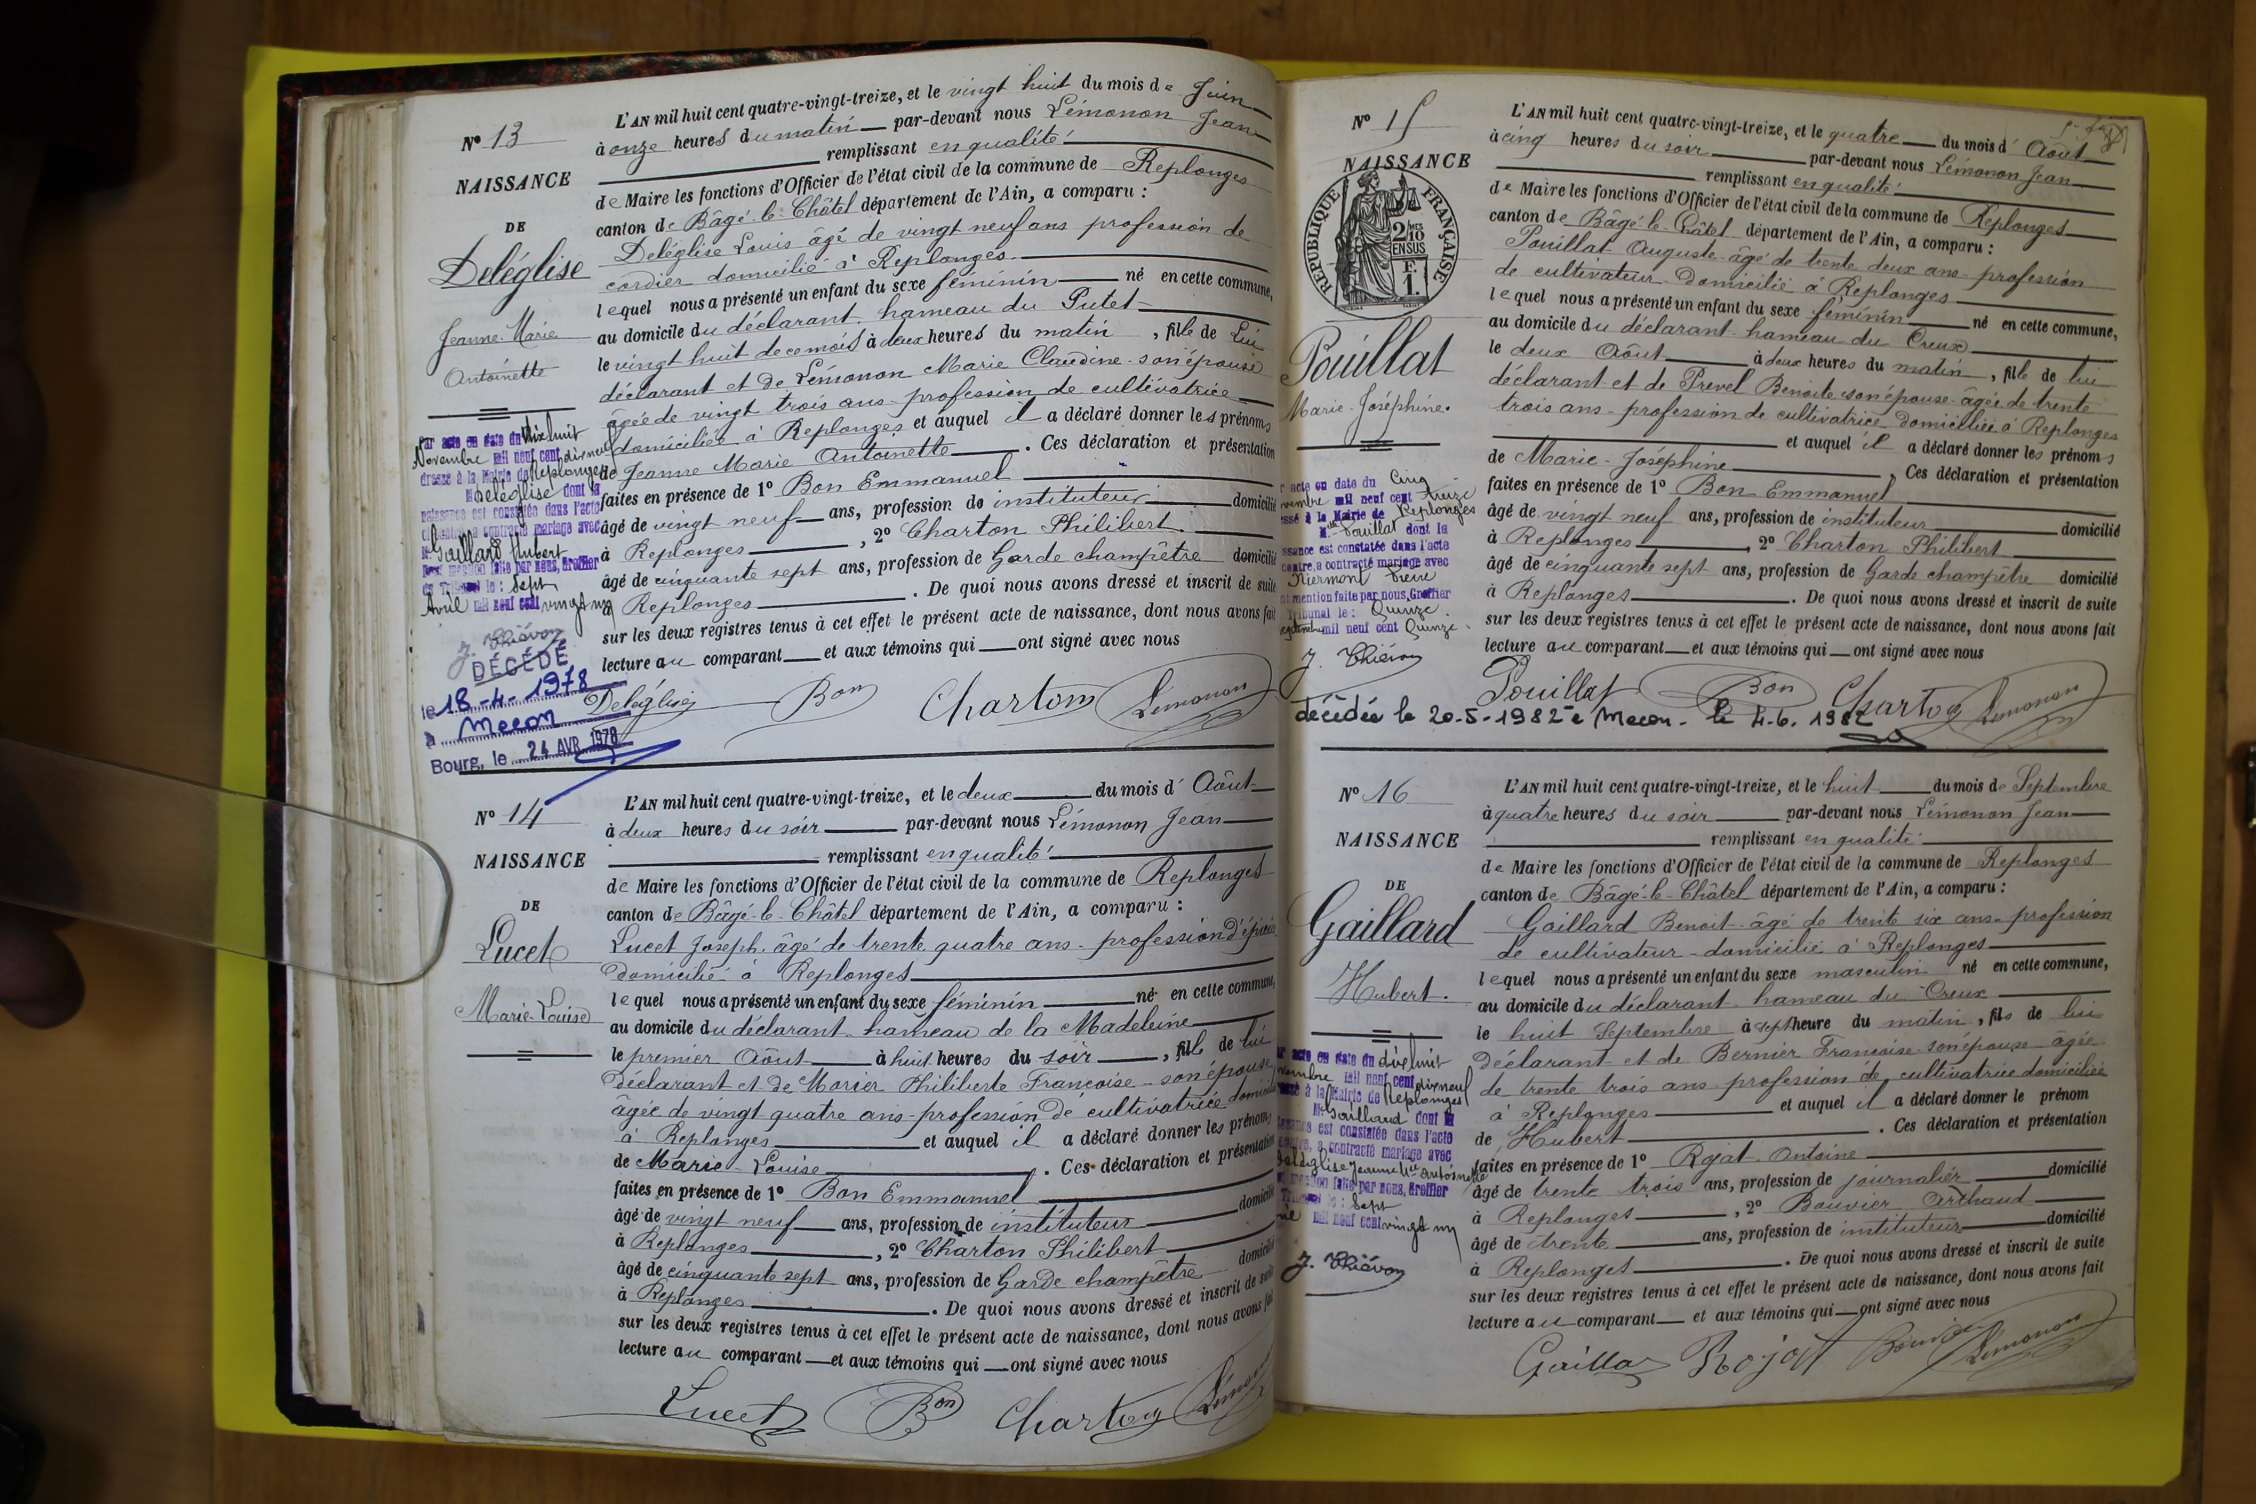 Nº 13
NAISSANCE
DE
Deléglise
Jeanne-Marie
Antoinette
Par acte en date du dix huit
Novembre mil neuf cent dix neuf
dressé à la Mairie de Replonges
M Deléglise dont la
naissance est constatée dans l'acte
ci-contre, a contracté mariage avec
M. Gaillard Hubert
Pour mention faite par nous, Greffier
du Tribunal le : Sept
Avril mil neuf cent vingt un
J. Thiévon
DÉCÉDÉ
le 18-4-1978
à Macon
Bourg, le 24 AVR. 1978
L'AN mil huit cent quatre-vingt-treize, et le vingt huit du mois de Juin
à onze heures du matin par-devant nous Lémonon Jean
remplissant en qualité
de Maire les fonctions d'Officier de l'état civil de la commune de Replonges
canton de Bâgé-le-Châtel département de l'Ain, a comparu :
Deléglise Louis âgé de vingt neuf ans profession de
cordier domicilié à Replonges
lequel nous a présenté un enfant du sexe féminin né en cette commune,
au domicile du déclarant hameau du Putet
le vingt huit de ce mois à deux heures du matin, fille de Lui
déclarant et de Lémonon Marie Claudine son épouse
âgée de vingt trois ans profession de cultivatrice
domiciliée à Replonges et auquel il a déclaré donner les prénoms
de Jeanne Marie Antoinette. Ces déclaration et présentation
faites en présence de 1º Bon Emmanuel
âgé de vingt neuf ans, profession de instituteur domicilié
à Replonges, 2º Charton Philibert
âgé de cinquante sept ans, profession de Garde champêtre domicilié
à Replonges. De quoi nous avons dressé et inscrit de suite
sur les deux registres tenus à cet effet le présent acte de naissance, dont nous avons fait
lecture au comparant et aux témoins qui ont signé avec nous
Deléglise Bon Charton Lémonon
Nº 14
NAISSANCE
DE
Lucet
Marie-Louise
L'AN mil huit cent quatre-vingt-treize, et le deux du mois d'Août
à deux heures du soir par-devant nous Lémonon Jean
remplissant en qualité
de Maire les fonctions d'Officier de l'état civil de la commune de Replonges
canton de Bâgé-le-Châtel département de l'Ain, a comparu :
Lucet Joseph âgé de trente quatre ans - profession d'épicier
domicilié à Replonges
lequel nous a présenté un enfant du sexe féminin né en cette commune,
au domicile du déclarant hameau de la Madeleine
le premier Août à huit heures du soir, fille de lui
déclarant et de Morier Philiberte Françoise - son épouse
âgée de vingt quatre ans - profession de cultivatrice domiciliée
à Replonges et auquel il a déclaré donner les prénoms
de Marie-Louise. Ces déclaration et présentation
faites en présence de 1º Bon Emmanuel
âgé de vingt neuf ans, profession de instituteur domicilié
à Replonges, 2º Charton Philibert
âgé de cinquante sept ans, profession de Garde champêtre domicilié
à Replonges. De quoi nous avons dressé et inscrit de suite
sur les deux registres tenus à cet effet le présent acte de naissance, dont nous avons fait
lecture au comparant et aux témoins qui ont signé avec nous
Lucet Bon Charton Lémonon
Nº 15
NAISSANCE
RÉPUBLIQUE FRANÇAISE
2/10 MES
EN SUS
F.
1.
Pouillat
Marie-Joséphine.
r acte en date du Cinq
vembre mil neuf cent Treize
ssé à la Mairie de Replonges
M Pouillat dont la
ssance est constatée dans l'acte
contre, a contracté mariage avec
Niermont Pierre
mention faite par nous, Greffier
Tribunal le : Quinze
mil neuf cent Quinze.
J. Thiévon
L'AN mil huit cent quatre-vingt-treize, et le quatre du mois d'Août
à cinq heures du soir par-devant nous Lémonon Jean
remplissant en qualité
de Maire les fonctions d'Officier de l'état civil de la commune de Replonges
canton de Bâgé-le-Châtel département de l'Ain, a comparu :
Pouillat Auguste âgé de trente deux ans - profession
de cultivateur domicilié à Replonges
lequel nous a présenté un enfant du sexe féminin né en cette commune,
au domicile du déclarant hameau du Creux
le deux Août à deux heures du matin, fille de lui
déclarant et de Prevel Benoîte son épouse âgée de trente
trois ans - profession de cultivatrice domiciliée à Replonges
et auquel il a déclaré donner les prénoms
de Marie-Joséphine, Ces déclaration et présentation
faites en présence de 1º Bon Emmanuel
âgé de vingt neuf ans, profession de instituteur domicilié
à Replonges, 2º Charton Philibert
âgé de cinquante sept ans, profession de Garde champêtre domicilié
à Replonges. De quoi nous avons dressé et inscrit de suite
sur les deux registres tenus à cet effet le présent acte de naissance, dont nous avons fait
lecture au comparant et aux témoins qui ont signé avec nous
Pouillat Bon Charton Lémonon
décédée le 20-5-1982 à Macon - le 4-6. 1982
Nº 16
NAISSANCE
DE
Gaillard
Hubert.
acte en date du dix huit
vembre mil neuf cent dix neuf
à la Mairie de Replonges
M. Gaillard dont la
est constatée dans l'acte
a contracté mariage avec
Deléglise Jeanne Mie Antoinette
mention faite par nous, Greffier
Tribunal le : Sept
mil neuf cent vingt un
J. Thiévon
L'AN mil huit cent quatre-vingt-treize, et le huit du mois de Septembre
à quatre heures du soir par-devant nous Lémonon Jean
remplissant en qualité
de Maire les fonctions d'Officier de l'état civil de la commune de Replonges
canton de Bâgé-le-Châtel département de l'Ain, a comparu :
Gaillard Benoit âgé de trente six ans - profession
de cultivateur - domicilié à Replonges
lequel nous a présenté un enfant du sexe masculin né en cette commune,
au domicile du déclarant hameau du Creux
le huit Septembre à sept heure du matin, fils de lui
déclarant et de Bernier Françoise son épouse âgée
de trente trois ans profession de cultivatrice domiciliée
à Replonges et auquel il a déclaré donner le prénom
de Hubert. Ces déclaration et présentation
faites en présence de 1º Rojat Antoine
âgé de trente trois ans, profession de journalier domicilié
à Replonges, 2º Bouvier Arthaud
âgé de trente ans, profession de instituteur domicilié
à Replonges. De quoi nous avons dressé et inscrit de suite
sur les deux registres tenus à cet effet le présent acte de naissance, dont nous avons fait
lecture au comparant et aux témoins qui ont signé avec nous
Gaillard Rojat Bouvier Lémonon